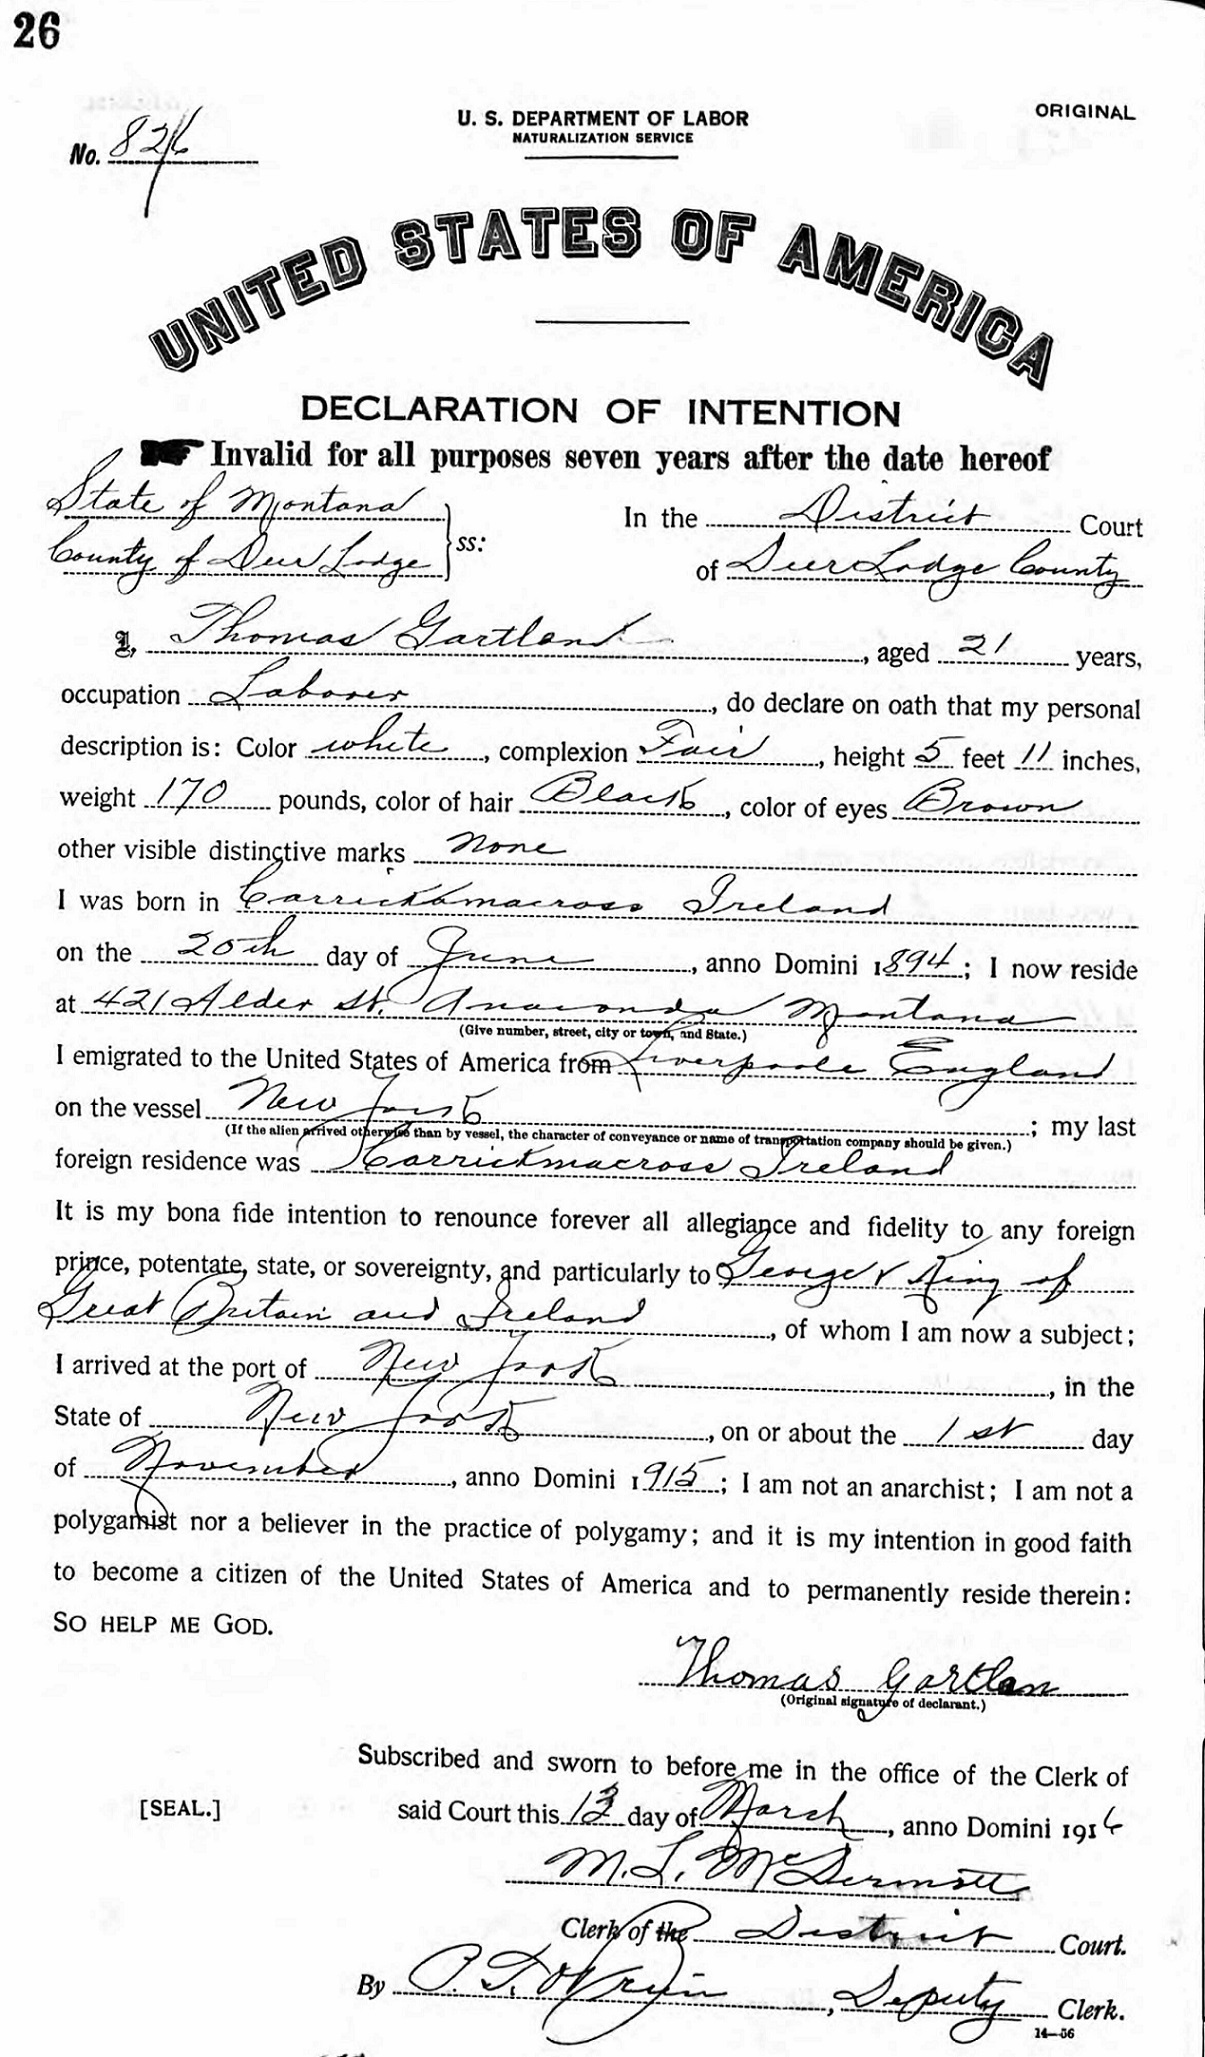 26
ORIGINAL
No. 826
U. S. DEPARTMENT OF LABOR
NATURALIZATION SERVICE
UNITED STATES OF AMERICA
DECLARATION OF INTENTION
☛ Invalid for all purposes seven years after the date hereof
State of Montana
County of Deer Lodge } ss:
In the District Court
of Deer Lodge County
I, Thomas Gartland, aged 21 years,
occupation Laborer, do declare on oath that my personal
description is: Color white, complexion Fair, height 5 feet 11 inches,
weight 170 pounds, color of hair Black, color of eyes Brown
other visible distinctive marks None
I was born in Carrickmacross Ireland
on the 20th day of June, anno Domini 1894; I now reside
at 421 Alder St. Anaconda Montana
(Give number, street, city or town, and State.)
I emigrated to the United States of America from Liverpoole England
on the vessel New York; my last
(If the alien arrived otherwise than by vessel, the character of conveyance or name of transportation company should be given.)
foreign residence was Carrickmacross Ireland
It is my bona fide intention to renounce forever all allegiance and fidelity to any foreign
prince, potentate, state, or sovereignty, and particularly to George V King of
Great Britain and Ireland, of whom I am now a subject;
I arrived at the port of New York, in the
State of New York, on or about the 1st day
of November, anno Domini 1915; I am not an anarchist; I am not a
polygamist nor a believer in the practice of polygamy; and it is my intention in good faith
to become a citizen of the United States of America and to permanently reside therein:
SO HELP ME GOD.
Thomas Gartlan
(Original signature of declarant.)
Subscribed and sworn to before me in the office of the Clerk of
[SEAL.]
said Court this 13 day of March, anno Domini 1916
M. L. McDermott
Clerk of the District Court.
By P. T. , Deputy Clerk.
14—56